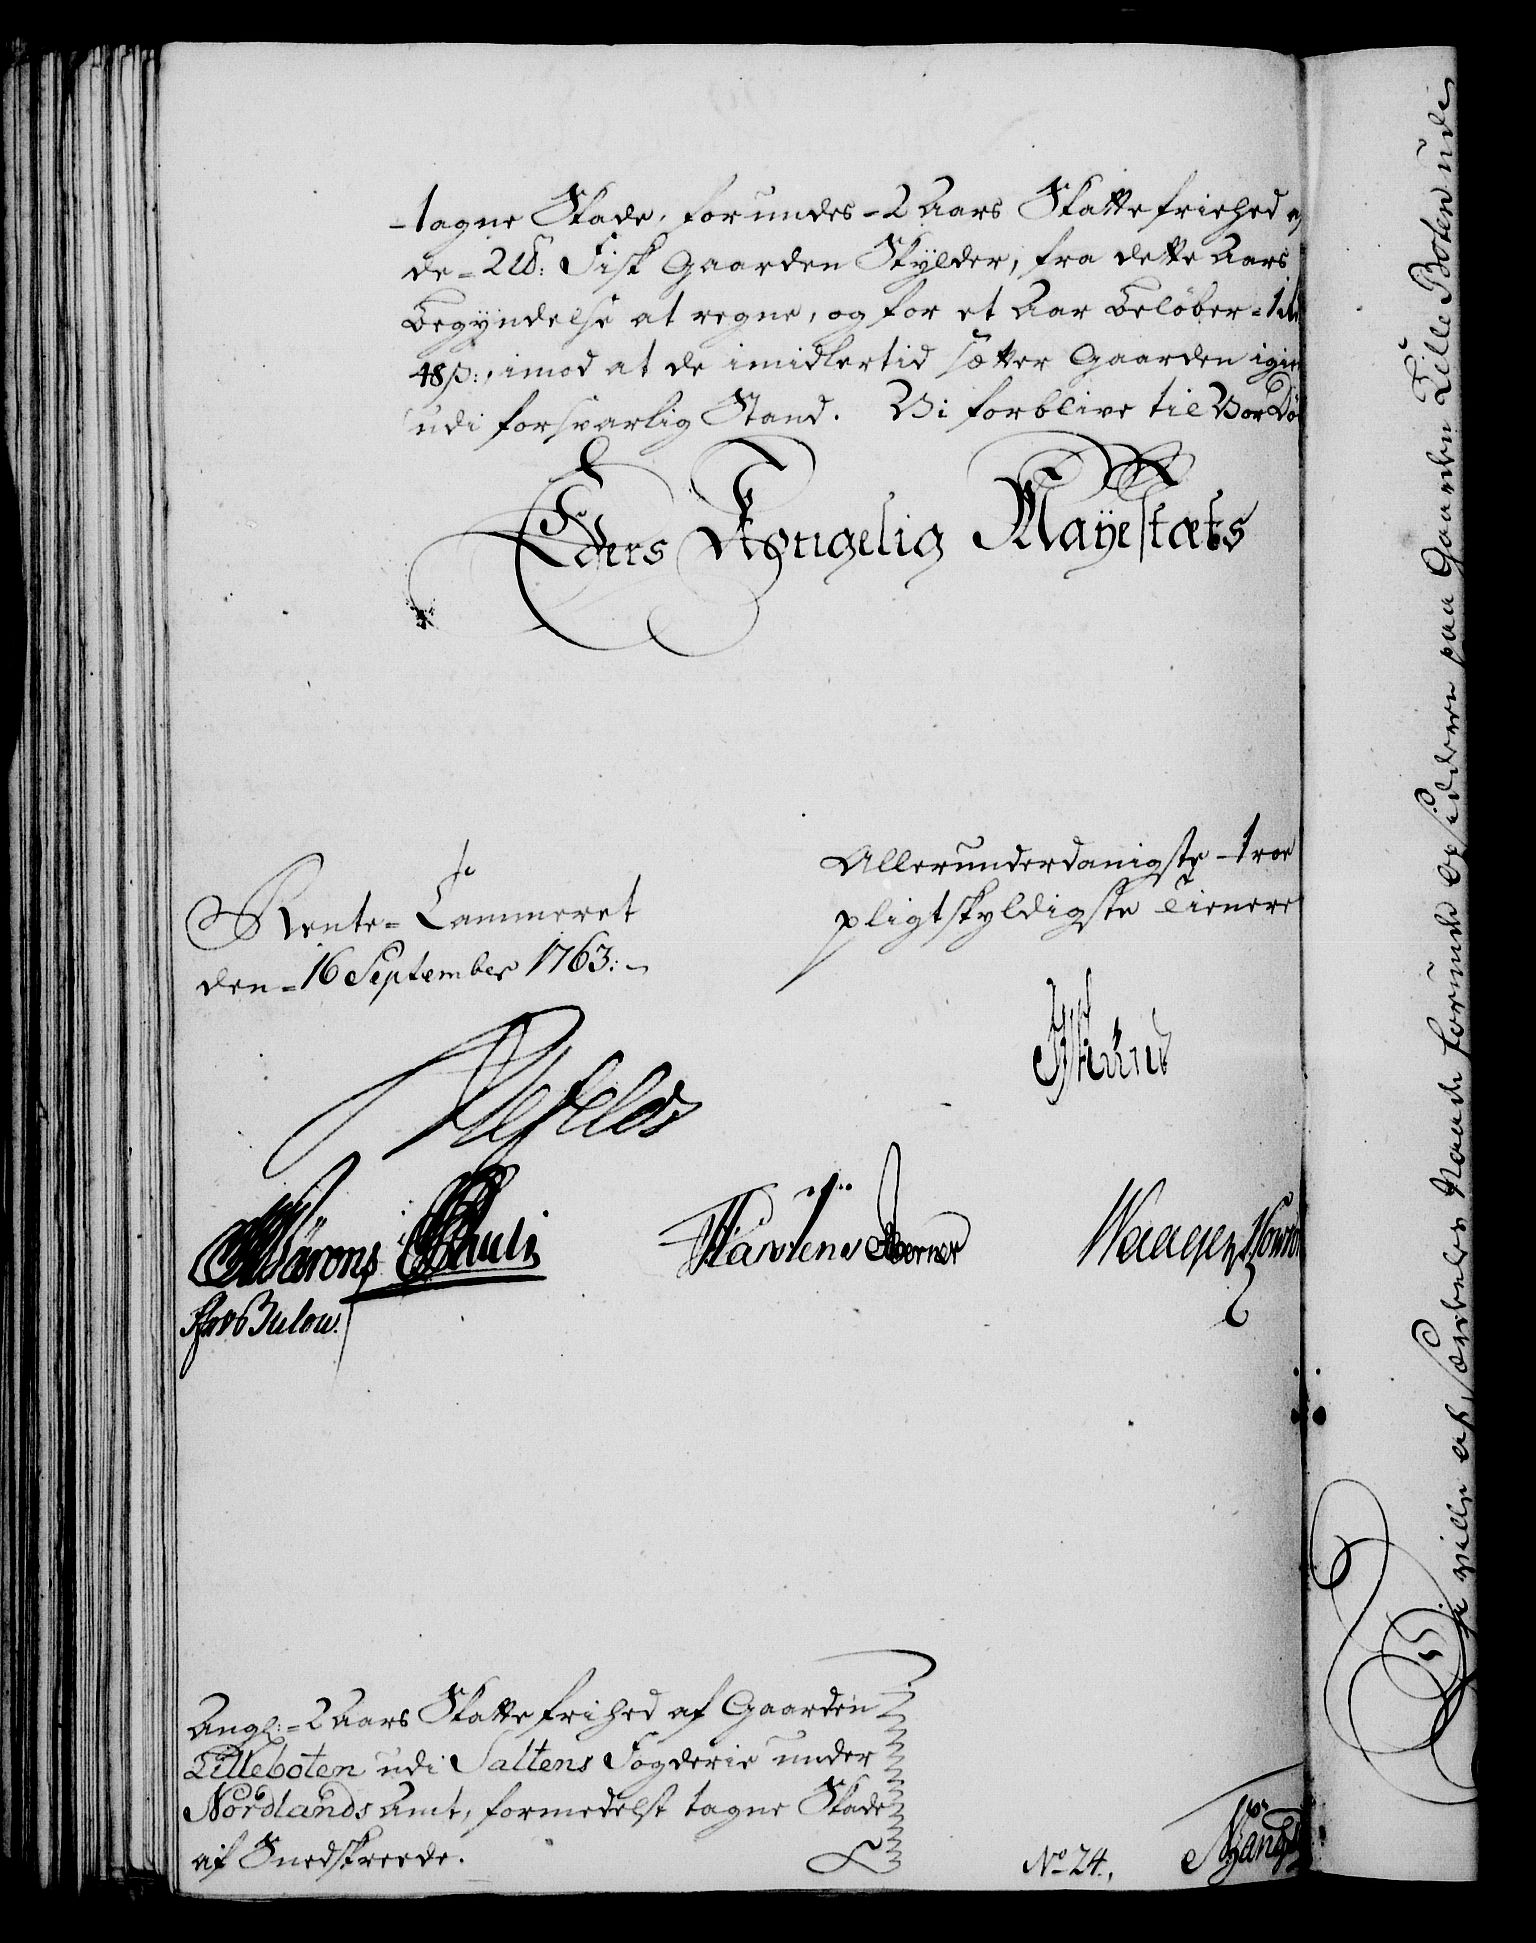 -tagne Skade, forundes - 2 Aars Skattefriehed
de = 2 lb: Fisk Gaarden Skylder, fra dette Aars
Begyndelse at regne, og for et Aar beløber = 1
48 ß:, imod at de imidlertid sætter Gaarden
udi forsvarlig Stand. Vi forblive til Vor
Eders Kongelig Mayestæts
Rente-Cammeret
den = 16 September 1763:
Allerunderdanigste troe
pligtskyldigste Tienere
Bulow.
Angl: = 2 Aars Skattefrihed af Gaarden
Lilleboten udi Saltens Fogderie under
Nordlands Amt, formedelst tagne Skade
af Sneeskreede.
No 24.
Vi ville af særdeles Naade forunde Opsidderen paa Gaarden Lille Boten udi